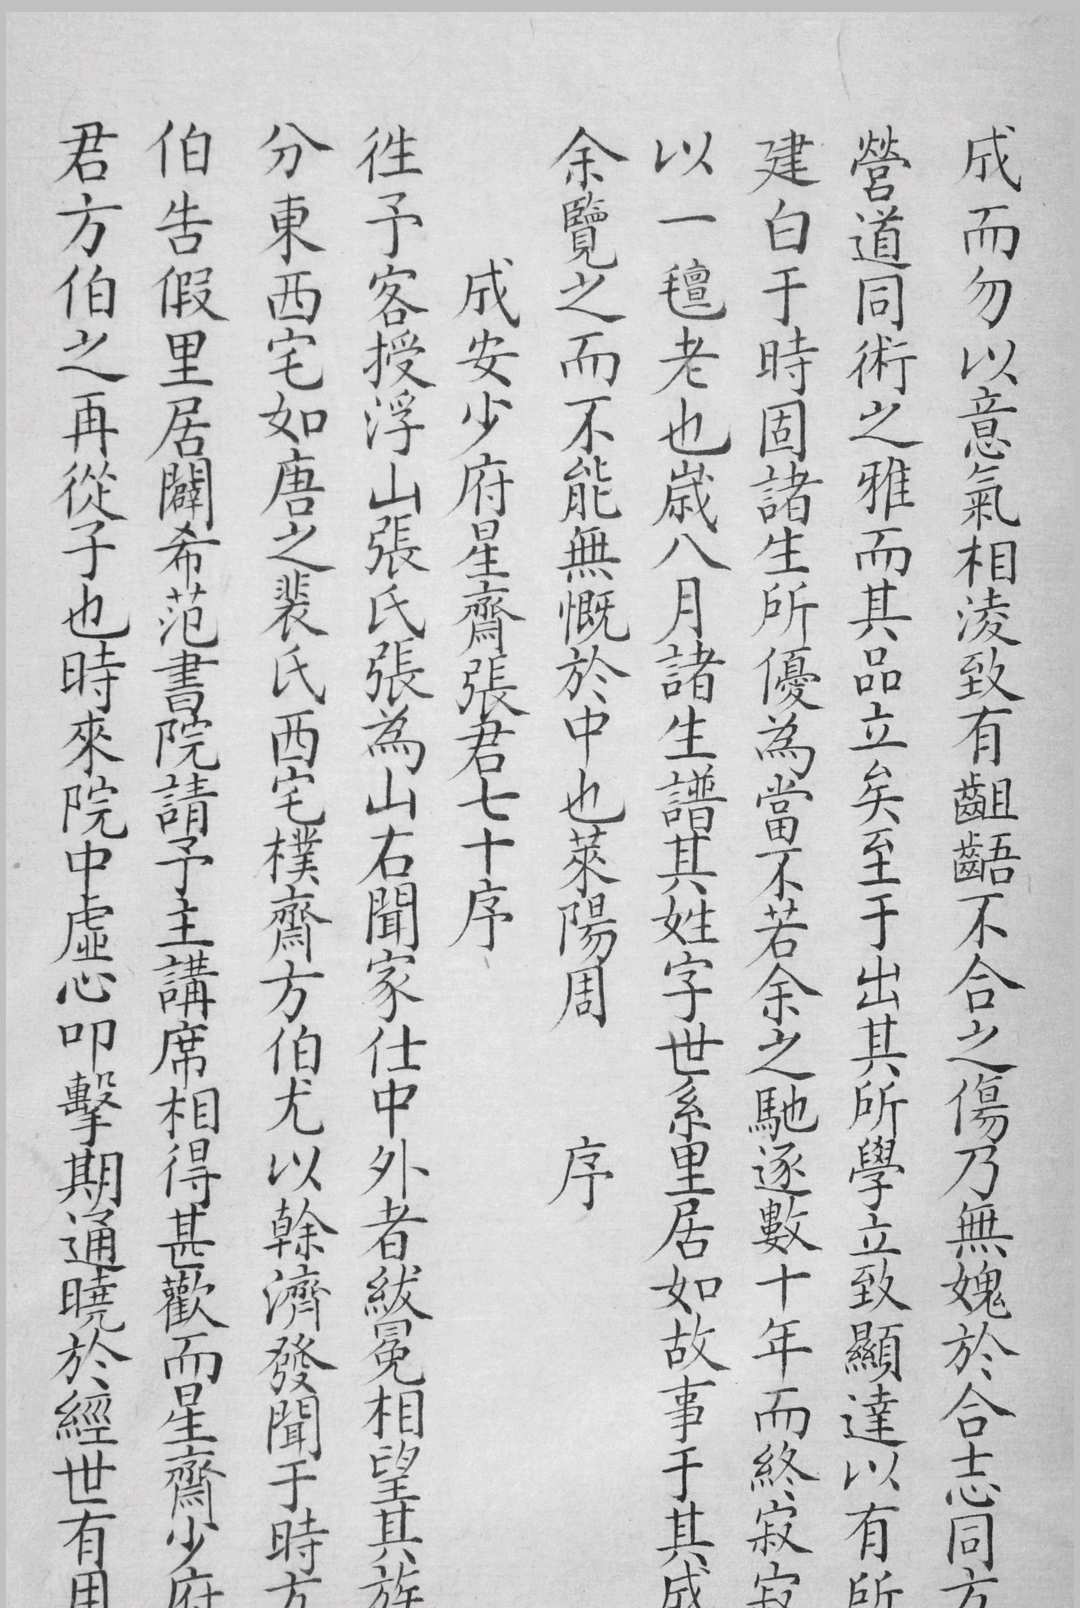 成而勿以意氣相淩致有齟齬不合之傷乃無媿於合志同方
營道同術之雅而其品立矣至于出其所學立致顯達以有所
建白于時固諸生所優為當不若余之馳逐數十年而終寂寂
以一氊老也歲八月諸生譜其姓字世系里居如故事于其成
余覽之而不能無慨於中也萊陽周　序
成安少府星齋張君七十序
徃予客授浮山張氏張為山右聞家仕中外者紱冕相望其族
分東西宅如唐之裴氏西宅樸齋方伯尤以榦濟發聞于時方
伯告假里居闢希范書院請予主講席相得甚歡而星齋少府
君方伯之再從子也時來院中虛心叩擊期通曉於經世有用